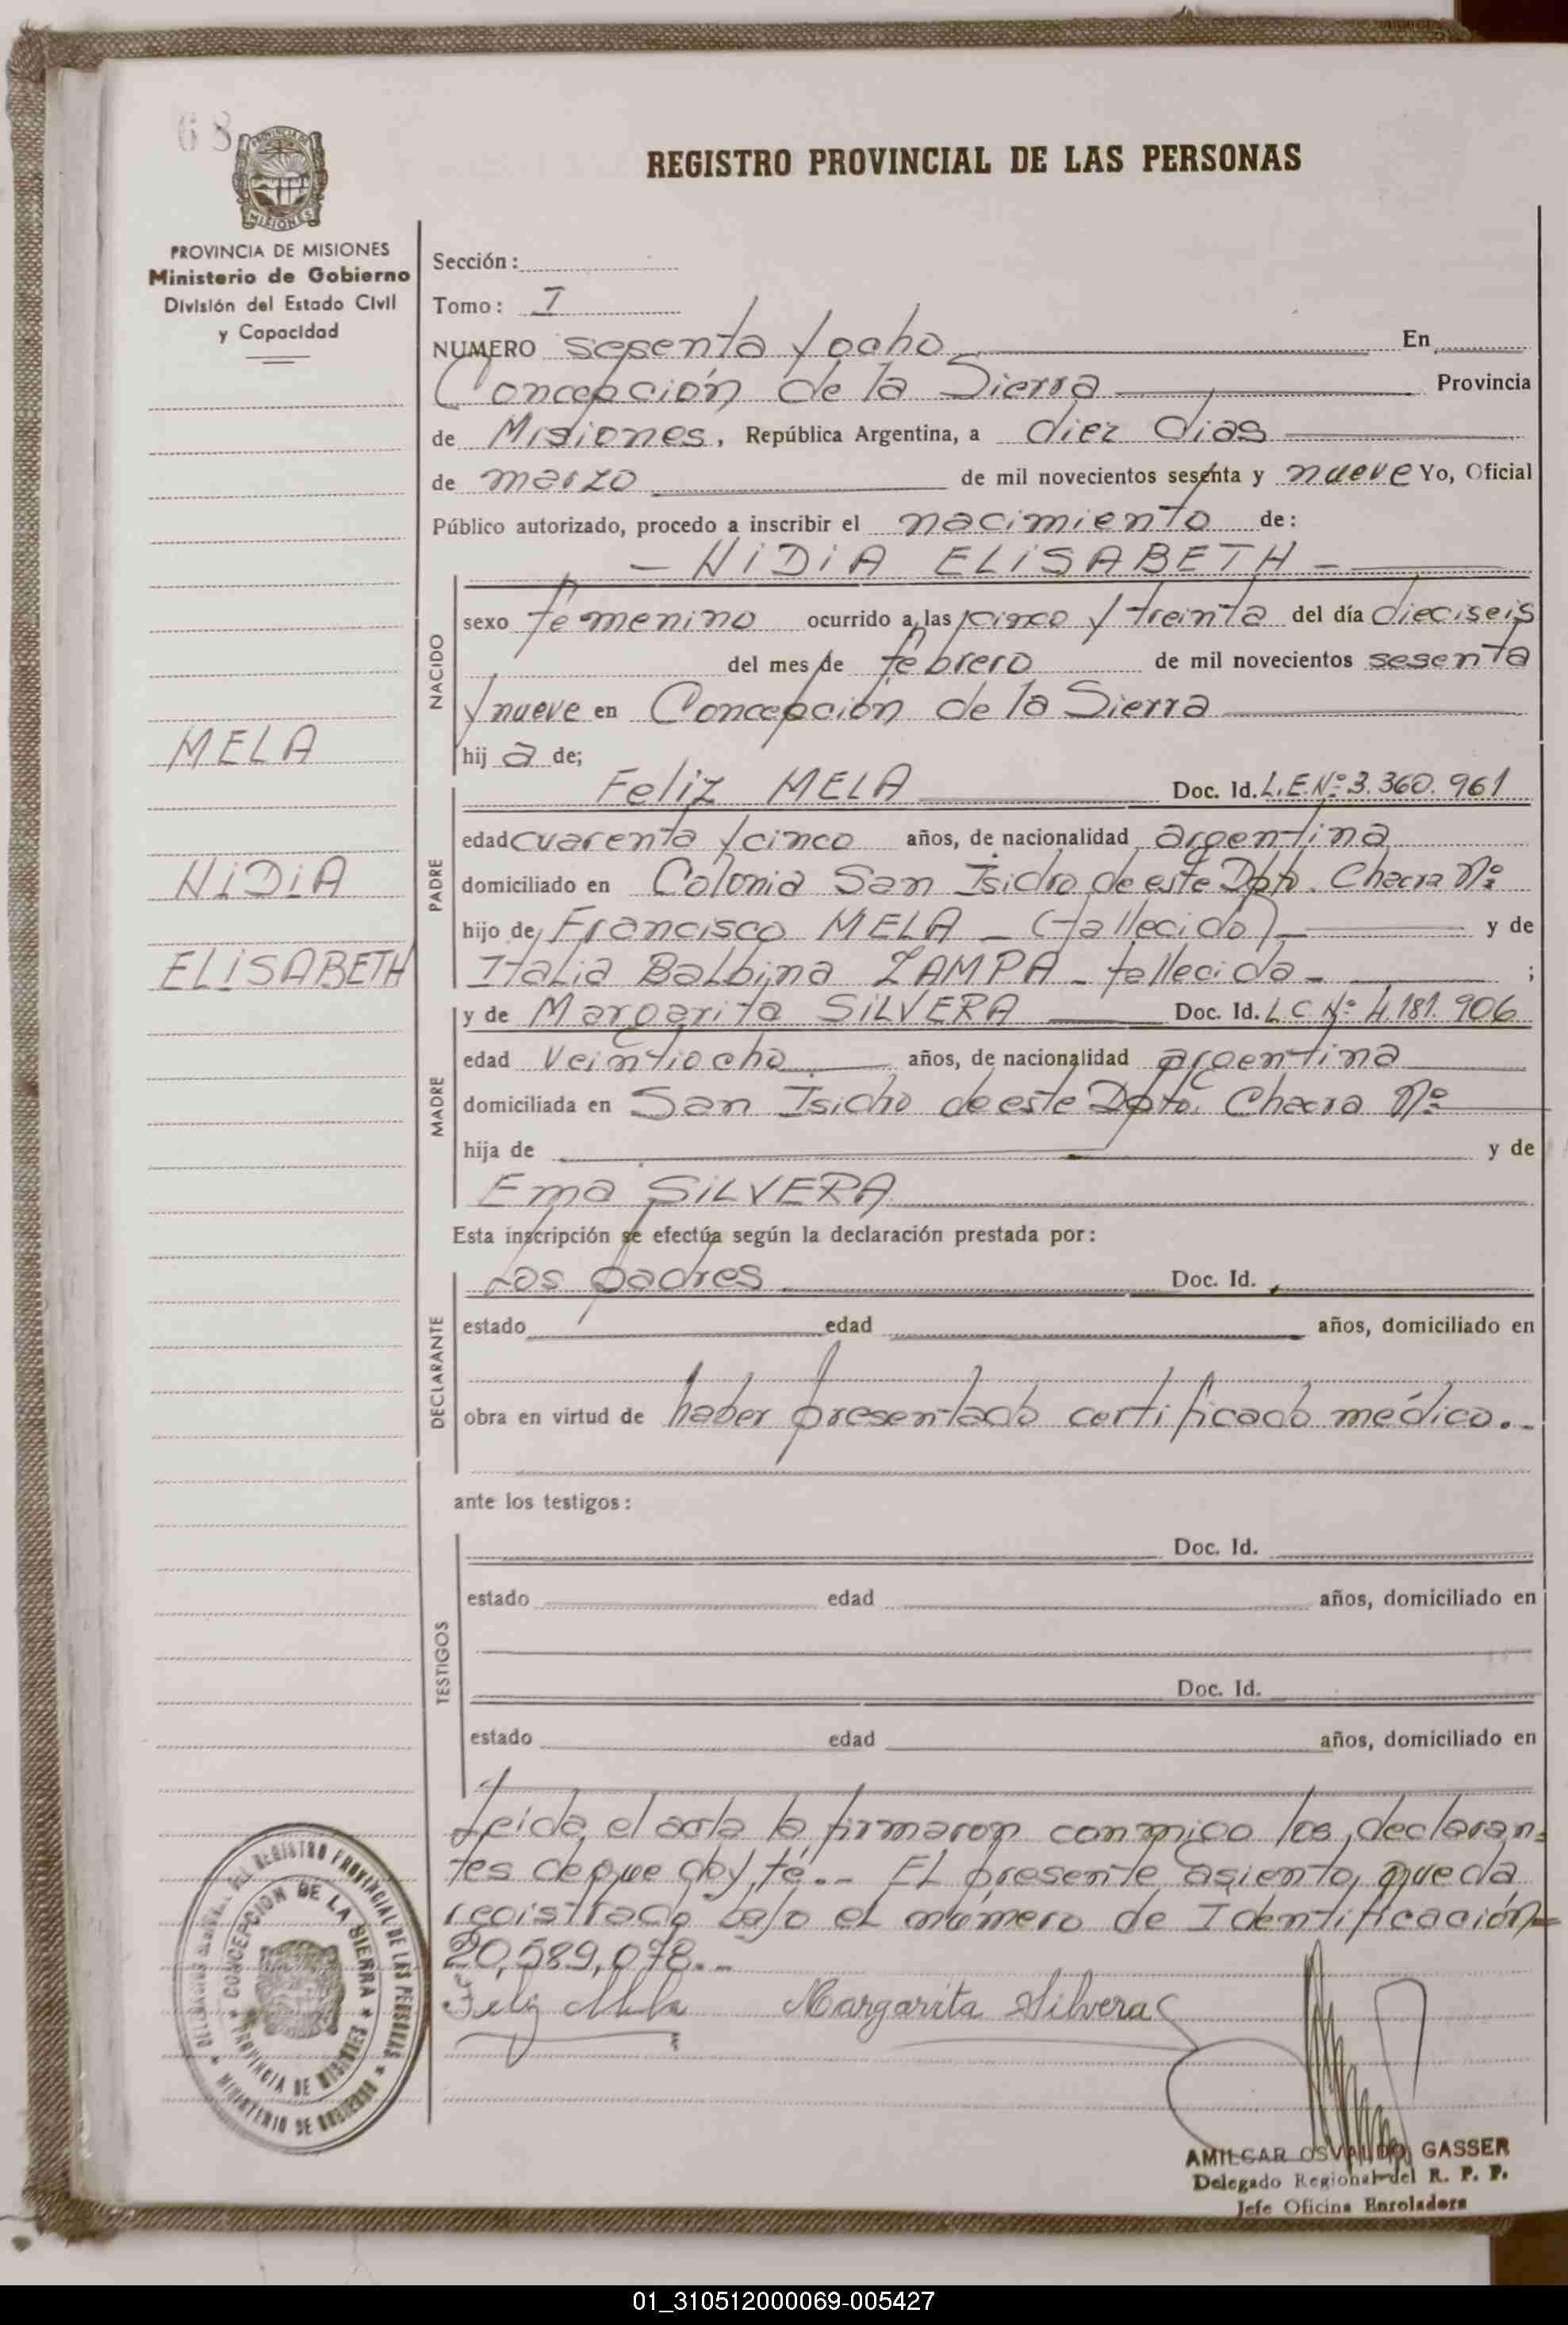 68
REGISTRO PROVINCIAL DE LAS PERSONAS
PROVINCIA DE MISIONES
Ministerio de Gobierno
División del Estado Civil
y Capacidad
Sección:
Tomo: I
NUMERO sesenta y ocho En
Concepción de la Sierra Provincia
de Misiones, República Argentina, a diez dias
de marzo de mil novecientos sesenta y nueve Yo, Oficial
Público autorizado, procedo a inscribir el nacimiento de:
- NiDiA ELiSABETH -
NACIDO
sexo femenino ocurrido a las cinco y treinta del día dieciseis
del mes de febrero de mil novecientos sesenta
y nueve en Concepción de la Sierra
hij a de;
MELA
NiDiA
ELiSABETH
PADRE
Feliz MELA Doc. Id. L.E.Nº 3.360.961
edad cuarenta y cinco años, de nacionalidad argentina
domiciliado en Colonia San Isidro de este Dpto. Chacra Nº
hijo de Francisco MELA - (fallecido) - y de
Italia Balbina ZAMPA - fallecida - ;
MADRE
y de Margarita SiLVERA Doc. Id. L C Nº 4.181.906
edad veintiocho años, de nacionalidad argentina
domiciliada en San Isidro de este Dpto. Chacra Nº
hija de y de
Ema SiLVERA
Esta inscripción se efectúa según la declaración prestada por:
DECLARANTE
Los padres Doc. Id.
estado edad años, domiciliado en
obra en virtud de haber presentado certificado médico.-
ante los testigos:
TESTIGOS
Doc. Id.
estado edad años, domiciliado en
Doc. Id.
estado edad años, domiciliado en
Leida el acta la firmaron conmigo los declaran=
tes de que doy fé.- El presente asiento queda
registrado bajo el número de Identificación=
20,589,078.-
Feliz Mela Margarita Silvera
REGISTRO PROVINCIAL DE LAS PERSONAS
CONCEPCION DE LA SIERRA
PROVINCIA DE MISIONES
MINISTERIO DE GOBIERNO
AMILCAR OSVALDO GASSER
Delegado Regional del R. P. P.
Jefe Oficina Enroladora
01_310512000069-005427